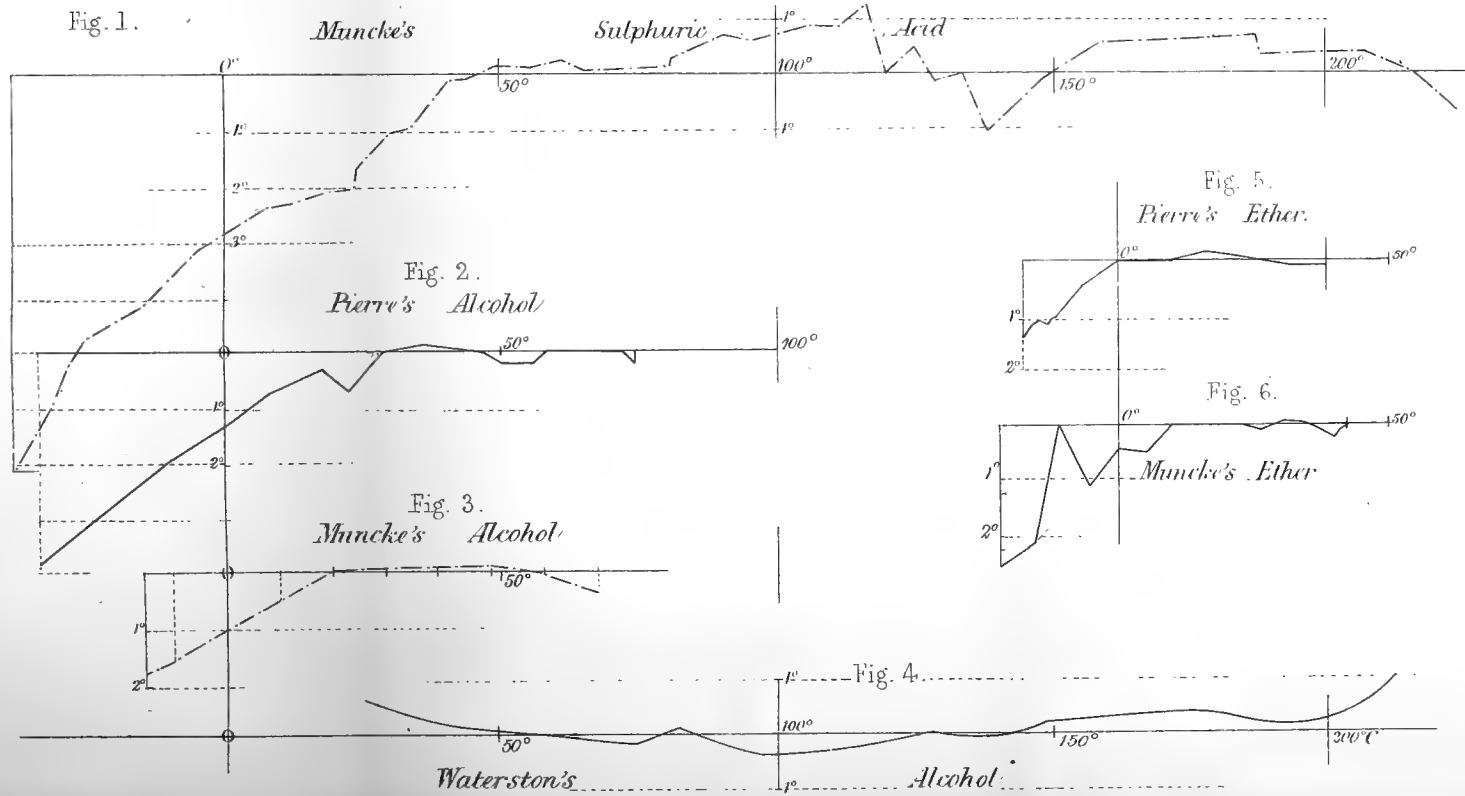 Fig. 1.
Muncke's Sulphuric Acid
1°
0°
50°
100°
150°
200°
1°
1°
2°
3°
Fig. 2.
Pierre's Alcohol
50°
100°
1°
2°
Fig. 3.
Muncke's Alcohol
50°
1°
2°
Fig. 4.
1°
50°
100°
150°
200°C
1°
Waterston's Alcohol
Fig. 5.
Pierre's Ether.
0°
50°
1°
2°
Fig. 6.
0°
50°
1°
Muncke's Ether
2°